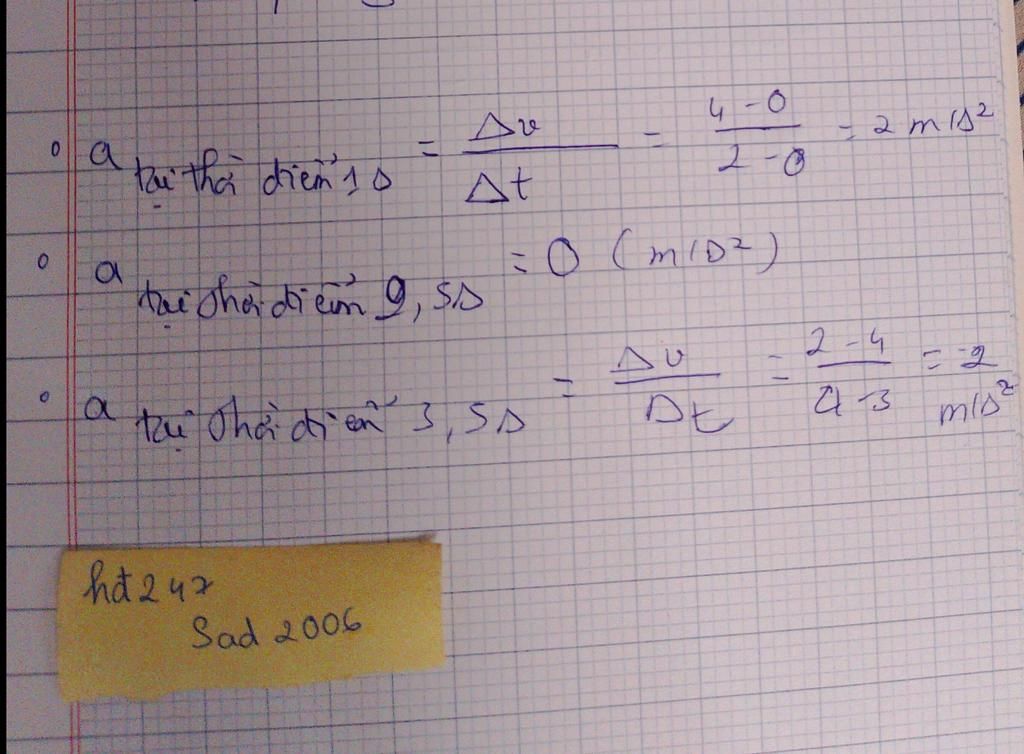 a tại thời điểm 1s = Δv/Δt = (4-0)/(2-0) = 2 m/s²
a tại thời điểm 2,5s = 0 (m/s²)
a tại thời điểm 3,5s = Δv/Δt = (2-4)/(4-3) = -2 m/s²
hđ247
Sad 2006